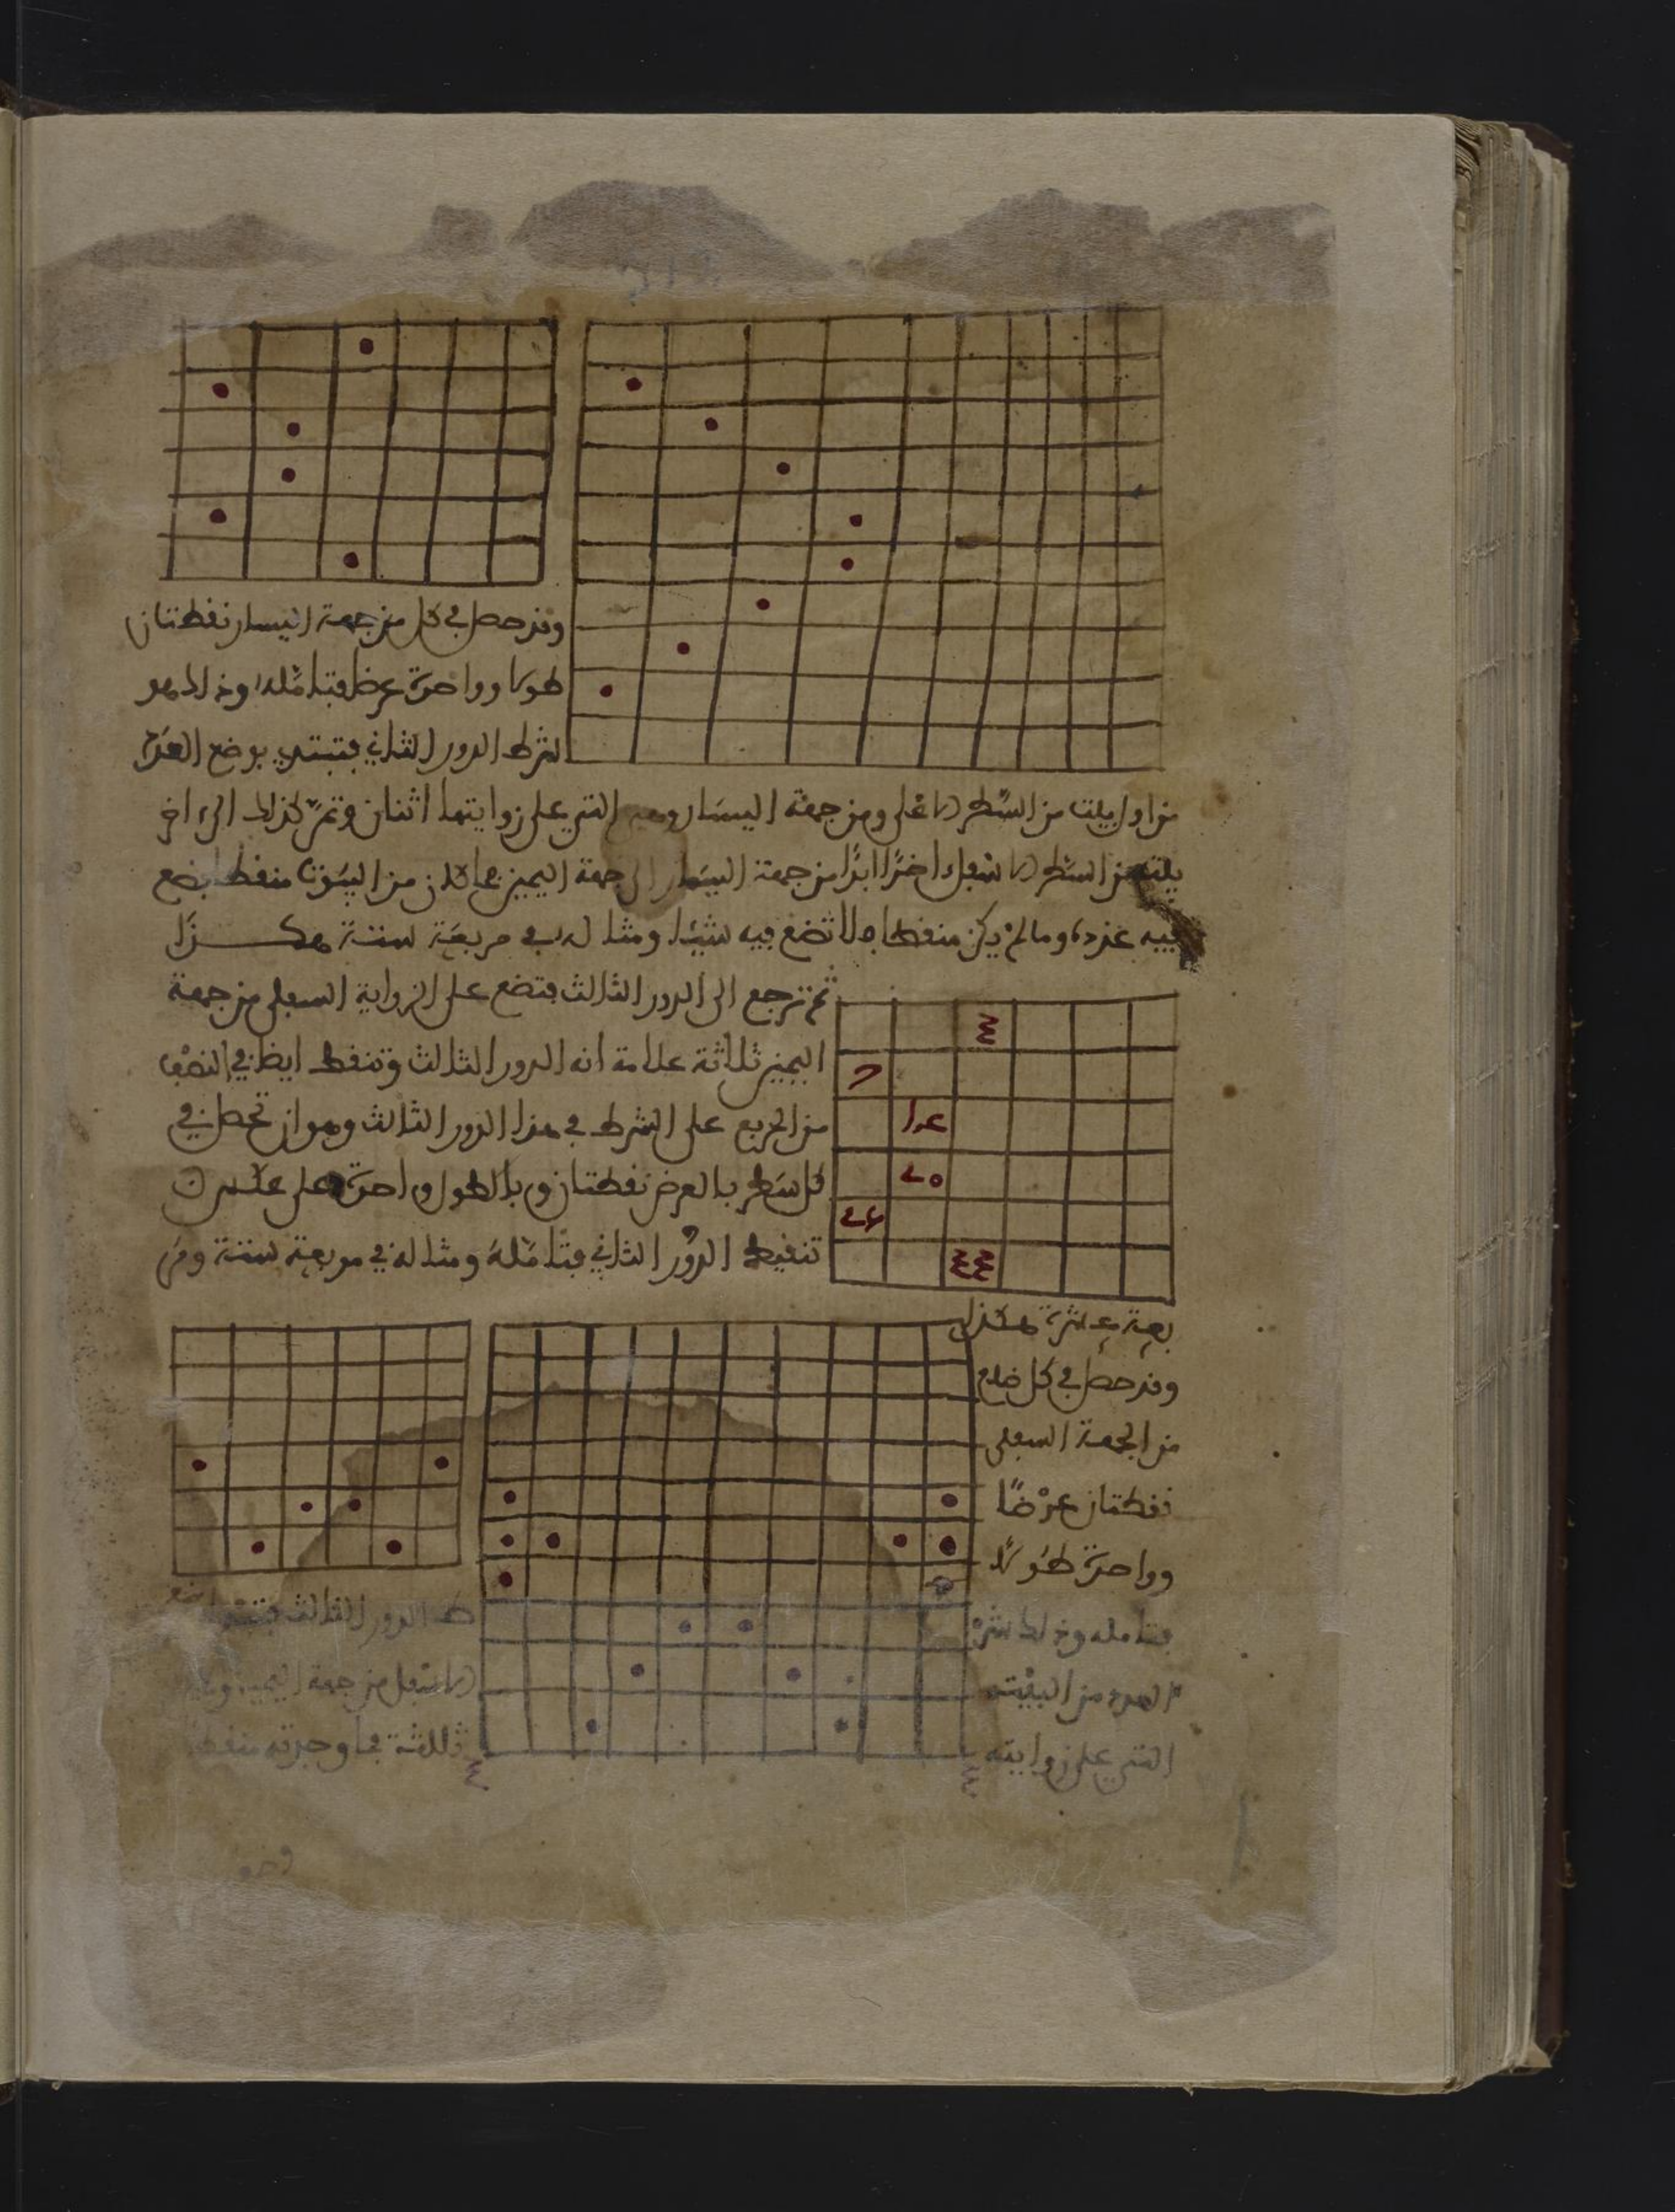 وقد حصل في كل من جهة اليسار نقطتان
طولا وواحدة عرضا فتامله وذلك هو
شرط الدور الثاني فتبتدي بوضع العدد
من اول بيت من السطر الاعلى ومن جهة اليسار وهي التي على زوايتها اثنان وتمر كذلك الى اخر
بيت من السطر الاسفل اخذا ابدا من جهة اليسار الى جهة اليمين فما كان من البيوت منقطا تضع
فيه عدده وما لم يكن منقطا فلا تضع فيه شيئا ومثاله في مربعة ستة هكــذا
ثم ترجع الى الدور الثالث فتضع على الزواية السفلى من جهة
اليمين ثلاثة علامة انه الدور الثالث وتنقط ايضا في النصف
من المربع على الشرط في هذا الدور الثالث وهو ان تحصل في
كل سطر بالعرض نقطتان وبالطول واحدة على عكس
تنقيط الدور الثاني فتامله ومثاله في مربعة ستة ومر
بعة عشرة هكذا
وقد حصل في كل ضلع
من الجهة السفلى
نقطتان عرضا
وواحدة طولا
فتامله وذلك شر
ط الدور الثالث
العدد من البيت
الاسفل من جهة اليمين
التي على زوايته
ثلثة فما وجدته منقطا